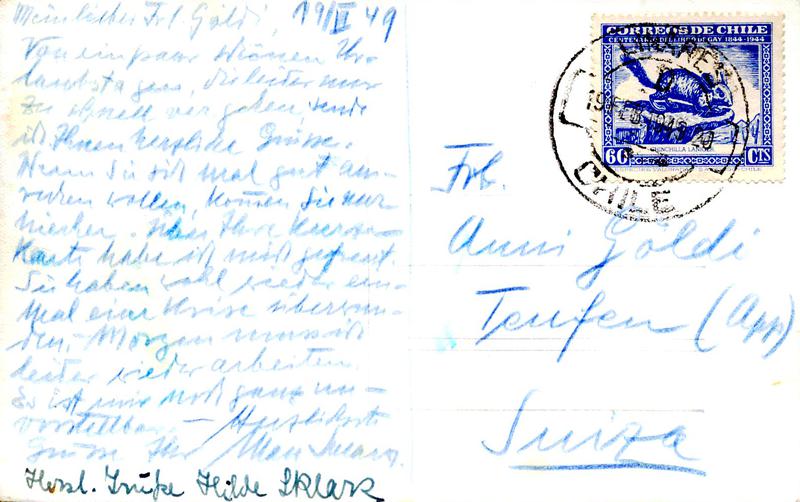 Mein liebes Frl. Göldi, 19/II 49
Von ein paar schönen Ur-
laubstagen, die leider nur
zu schnell vergehen, sende
ich Ihnen herzliche Grüsse.
Wenn Sie sich mal gut aus-
ruhen wollen, kommen Sie nur
hierher. Über Ihre
Karte habe ich mich gefreut.
Sie haben wohl wieder ein-
mal eine Krise überwun-
den. Morgen muss ich
leider wieder arbeiten.
Es ist mir noch ganz un-
vorstellbar. Herzlichste
Grüsse Ihr
Herzl. Grüße Hilde Sklarz
CORREOS DE CHILE
CENTENARIO DEL LIBRO DE GAY 1844-1944
CHINCHILLA LANIGER
60 CTS
LINARES
CHILE
Frl.
Anni Göldi
Teufen (App)
Suiza